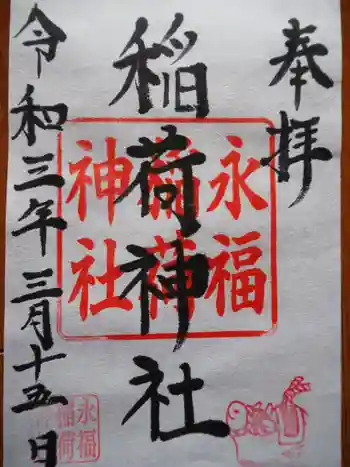 奉拝
稲荷神社
永福
稲荷
神社
令和三年三月十五日
永福
稲荷